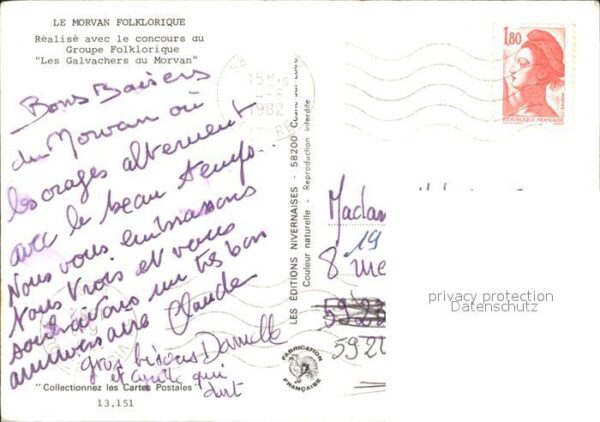 LE MORVAN FOLKLORIQUE
Réalisé avec le concours du
Groupe Folklorique
"Les Galvachers du Morvan"
Bons Baisers
du Morvan où
les orages alternent
avec le beau temps.
Nous vous embrassons
tous trois et vous
souhaitons un très bon
anniversaire Claude
gros bisous Danielle
et qui
dort
"Collectionnez les Cartes Postales"
13.151
LES ÉDITIONS NIVERNAISES - 58200 Cosne-sur-Loire
Couleur naturelle - Reproduction interdite
FABRICATION
FRANÇAISE
15H
1982
1,80
REPUBLIQUE FRANÇAISE
Madam
19
8
592
privacy protection
Datenschutz